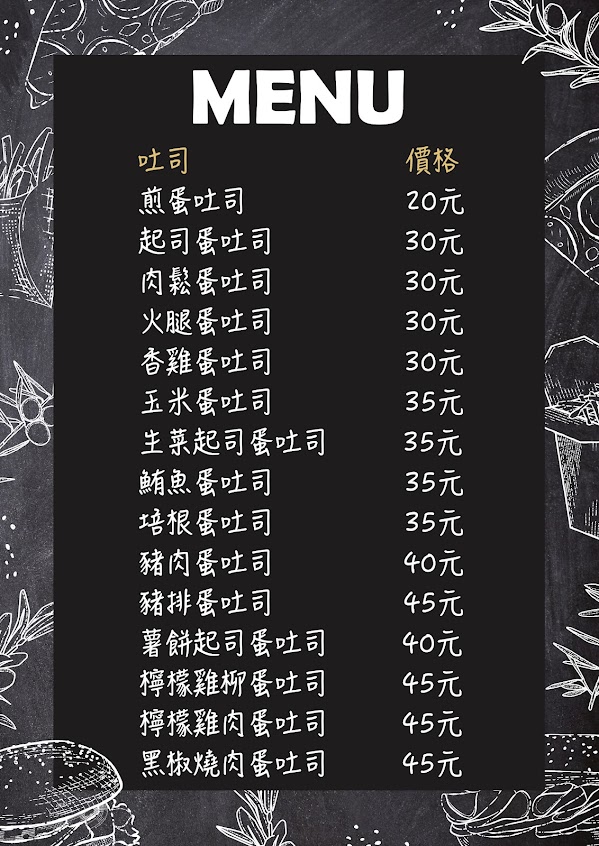 MENU
吐司 價格
煎蛋吐司 20元
起司蛋吐司 30元
肉鬆蛋吐司 30元
火腿蛋吐司 30元
香雞蛋吐司 30元
玉米蛋吐司 35元
生菜起司蛋吐司 35元
鮪魚蛋吐司 35元
培根蛋吐司 35元
豬肉蛋吐司 40元
豬排蛋吐司 45元
薯餅起司蛋吐司 40元
檸檬雞柳蛋吐司 45元
檸檬雞肉蛋吐司 45元
黑椒燒肉蛋吐司 45元